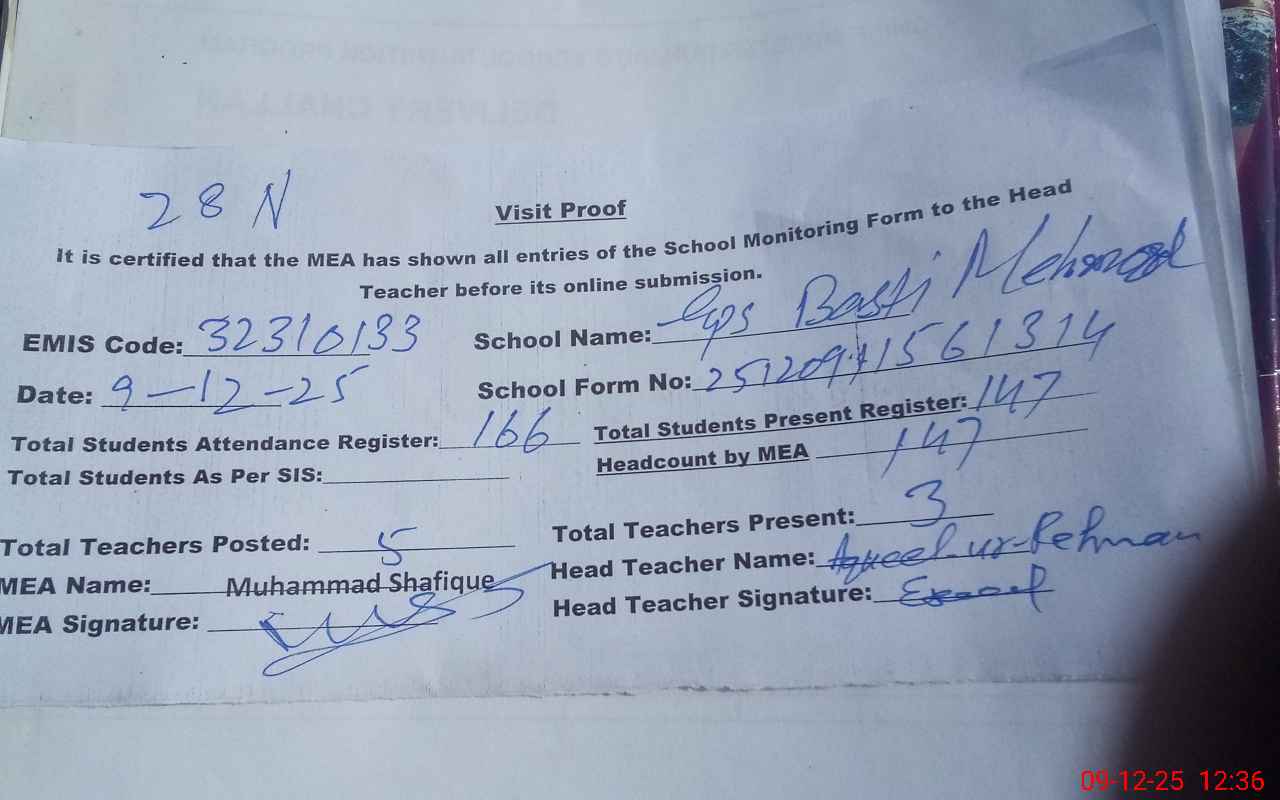 DELIVERY CHALLAN
28 N
Visit Proof
It is certified that the MEA has shown all entries of the School Monitoring Form to the Head
Teacher before its online submission.
EMIS Code: 32310133 School Name: Gps Basti Mehmood
Date: 9-12-25 School Form No: 251209111561314
Total Students Attendance Register: 166 Total Students Present Register: 147
Total Students As Per SIS: Headcount by MEA 147
Total Teachers Posted: 5 Total Teachers Present: 3
MEA Name: Muhammad Shafique Head Teacher Name: Aqeel-ur-Rehman
MEA Signature: Head Teacher Signature:
09-12-25 12:36